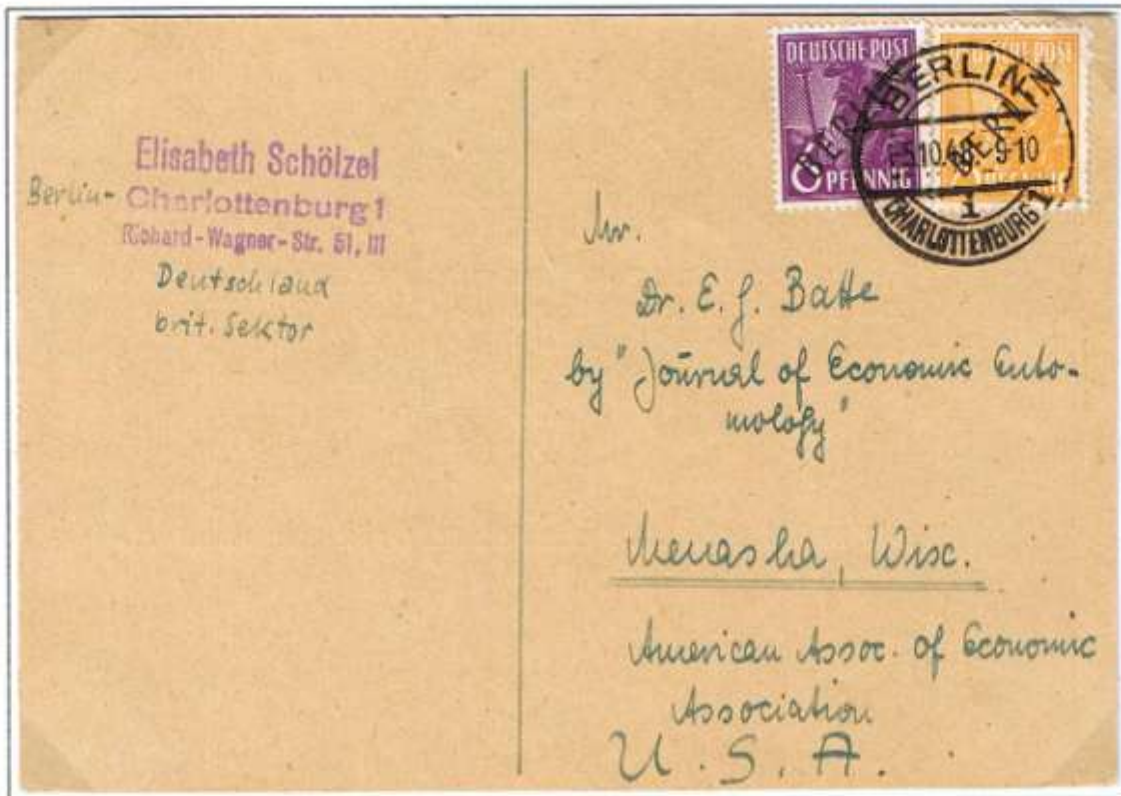 Elisabeth Schölzel
Berlin- Charlottenburg 1
Richard-Wagner-Str. 51, III
Deutschland
brit. Sektor
DEUTSCHE POST
BERLIN
6 PFENNIG
DEUTSCHE POST
BERLIN
BERLIN-
10.48 9-10
1
CHARLOTTENBURG 1
Mr.
Dr. E. J. Batte
by "Journal of Economic Ento-
mology"
Menasha, Wisc.
American Assoc. of Economic
Association
U. S. A.